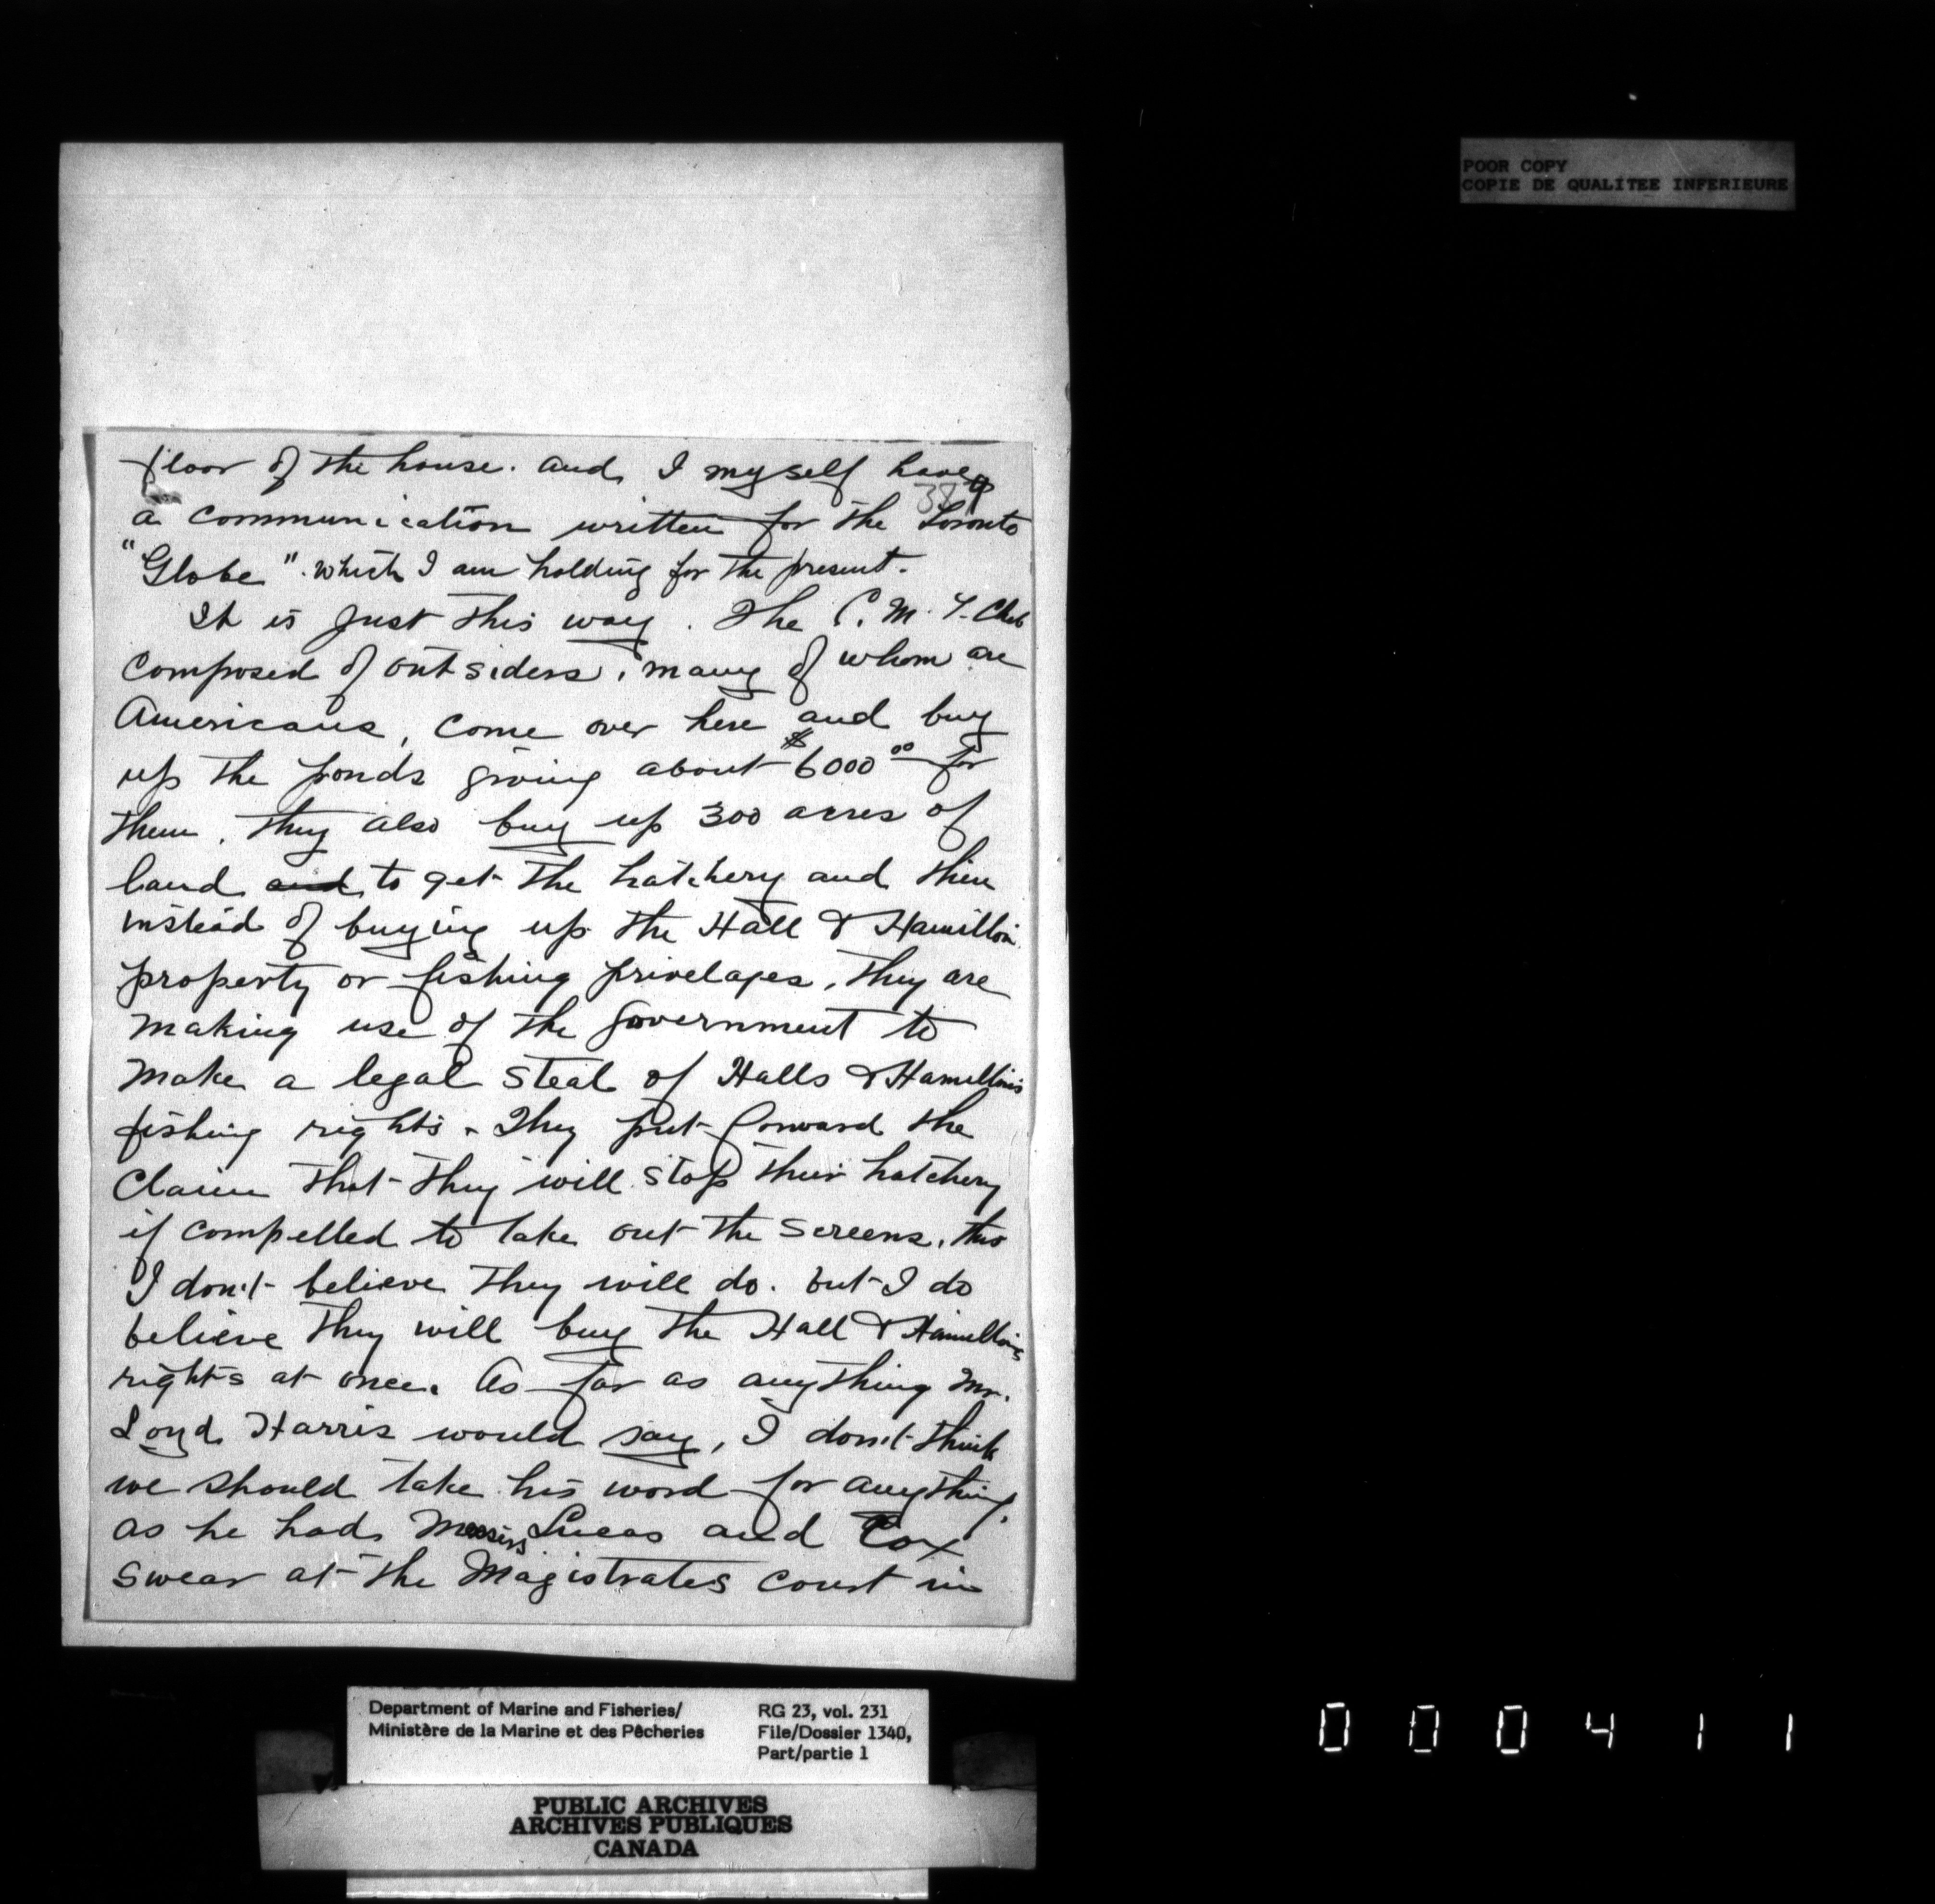 POOR COPY
COPIE DE QUALITEE INFERIEURE
floor of the house. and I myself have
a communication written for the Toronto
"Globe". which I am holding for the present.
It is just this way. The C. M. T. Club
composed of outsiders, many of whom are
Americans, come over here and buy
up the ponds giving about $6000.00 for
them, they also buy up 300 acres of
land and to get the hatchery and then
instead of buying up the Hall & Hamilton
property or fishing privelages, they are
making use of the Government to
make a legal steal of Halls & Hamiltons
fishing rights. They put forward the
claim that they will stop their hatchery
if compelled to take out the screens, this
I don't believe they will do. but I do
believe they will buy the Hall & Hamiltons
rights at once. As far as anything Mr.
Loyd Harris would say, I don't think
we should take his word for anything,
as he had Messrs Lucas and Cox
swear at the Magistrates court in
Department of Marine and Fisheries/
Ministère de la Marine et des Pêcheries
RG 23, vol. 231
File/Dossier 1340,
Part/partie 1
PUBLIC ARCHIVES
ARCHIVES PUBLIQUES
CANADA
000411